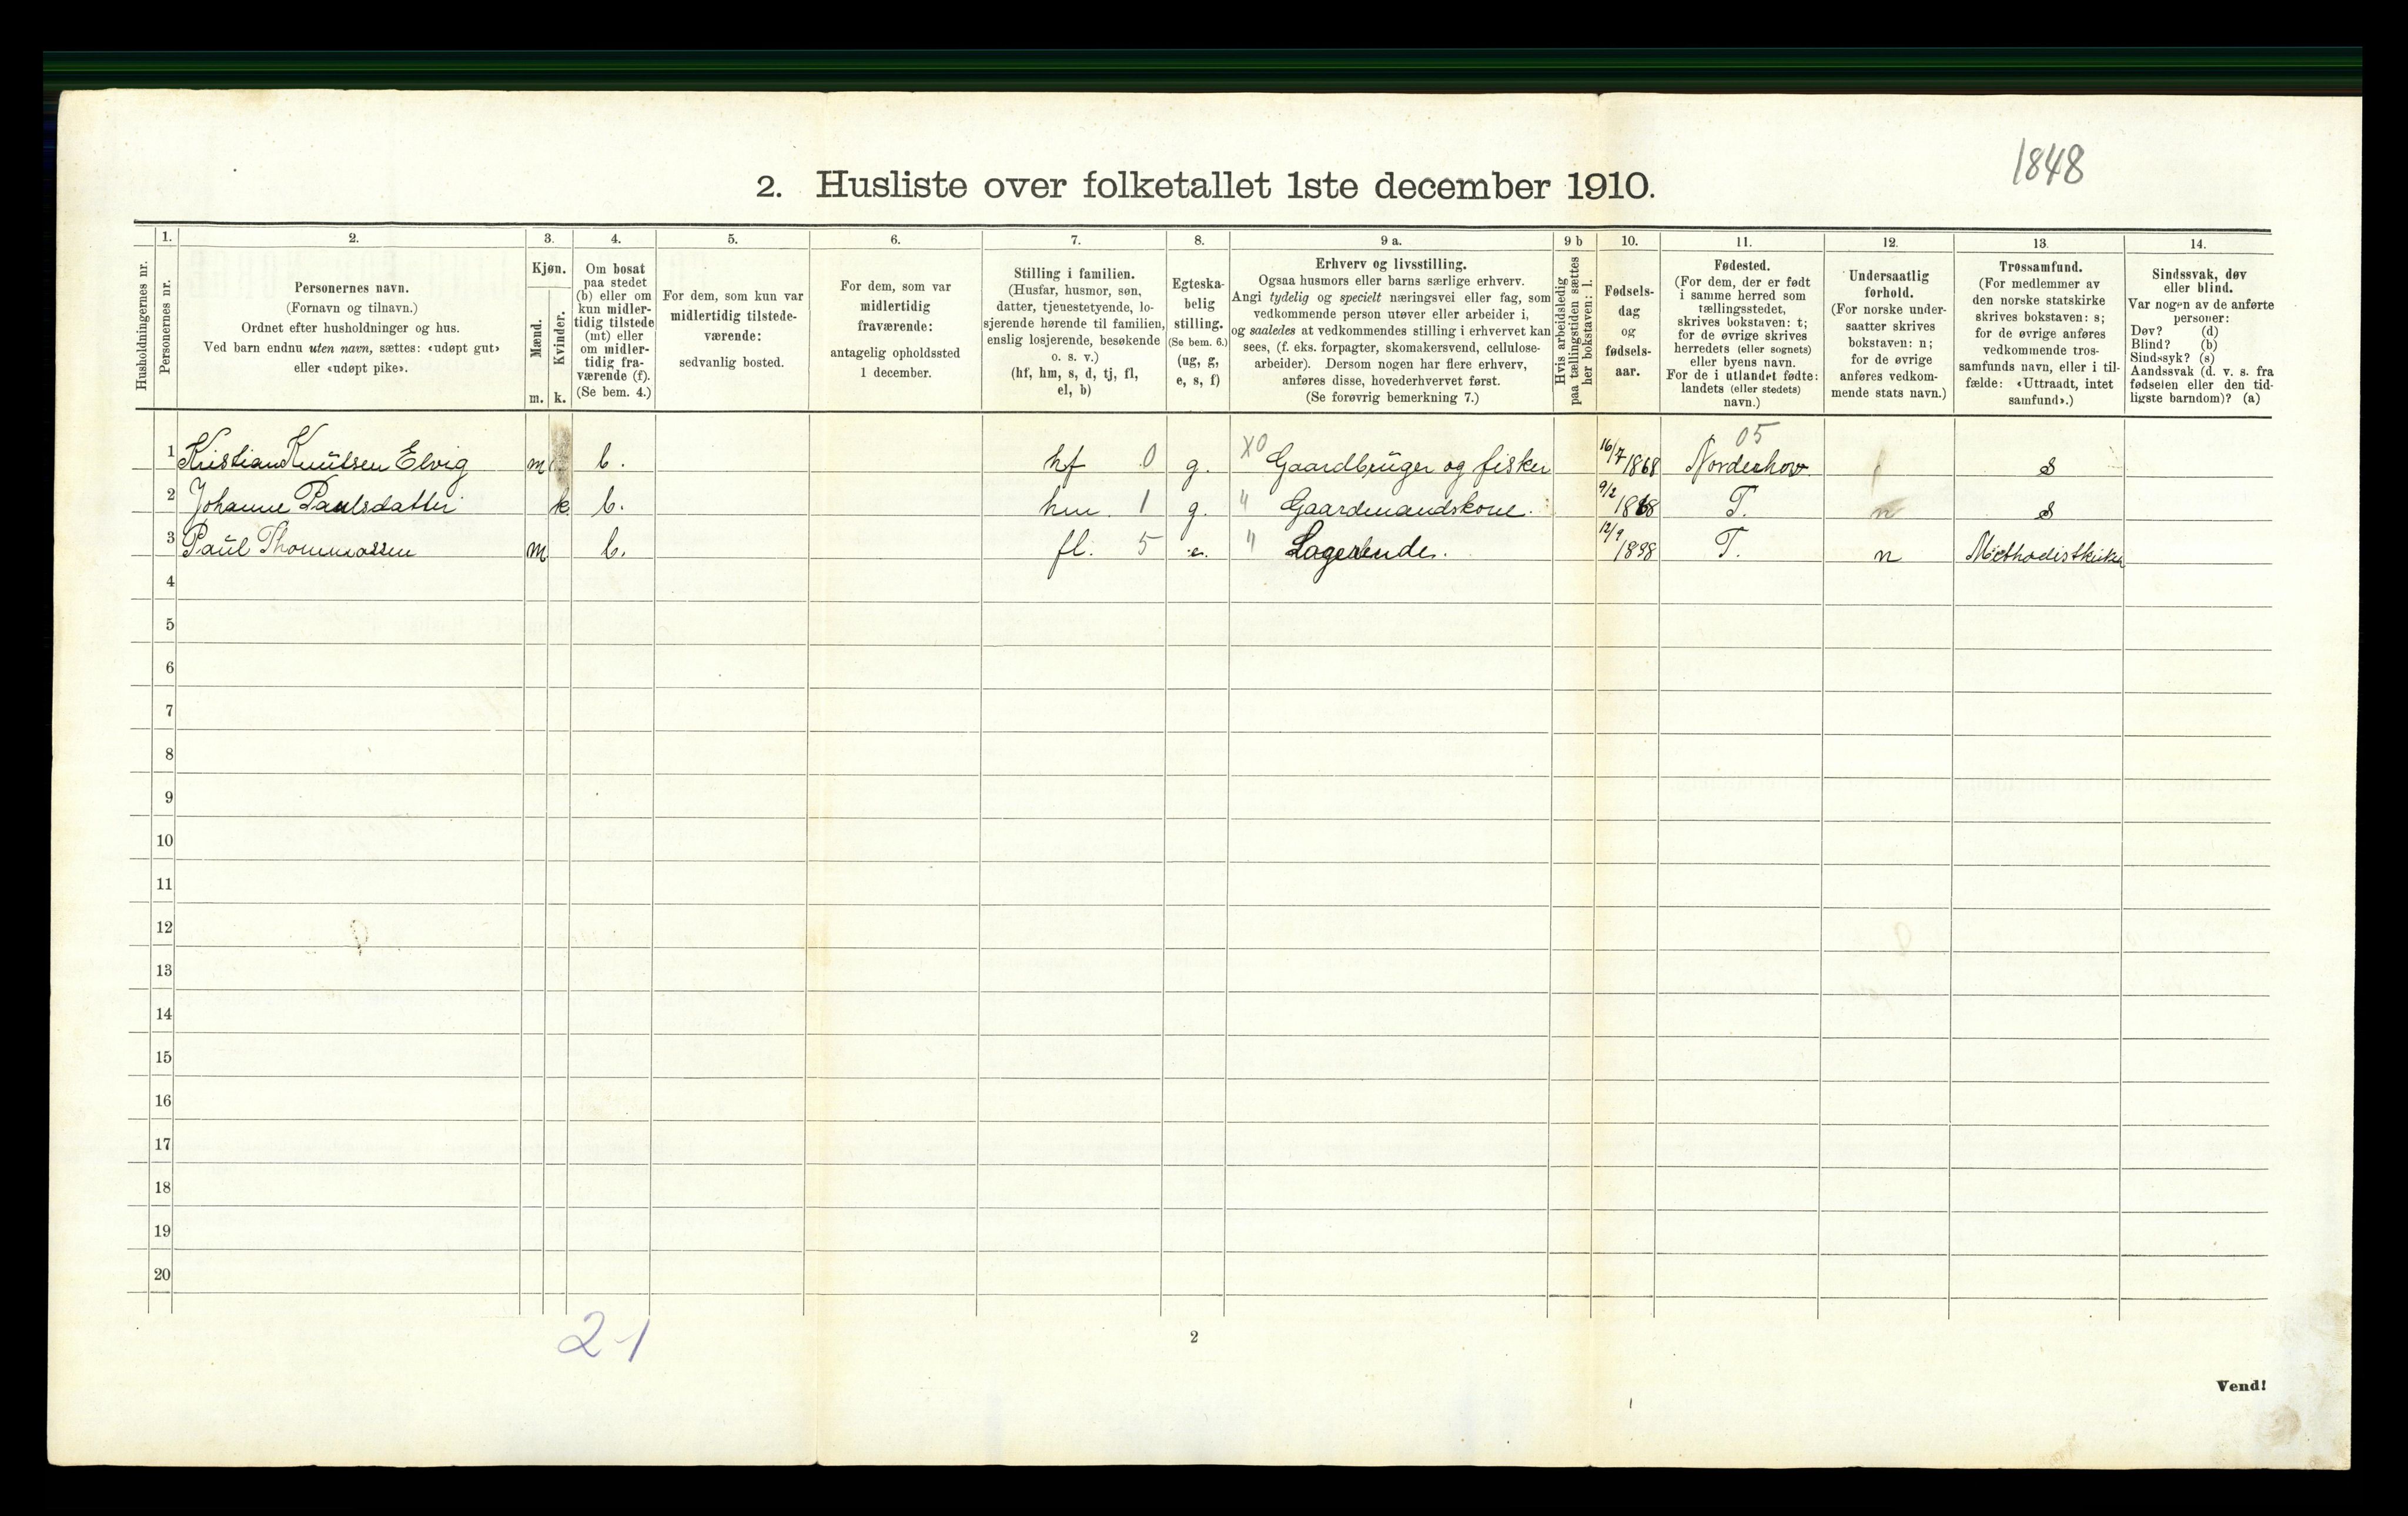 1848
2. Husliste over folketallet 1ste december 1910.
Husholdningernes nr.
1.
Personernes nr.
2.
Personernes navn.
(Fornavn og tilnavn.)
Ordnet efter husholdninger og hus.
Ved barn endnu uten navn, sættes: «udøpt gut»
eller «udøpt pike».
3.
Kjøn.
Mænd.
Kvinder.
m. k.
4.
Om bosat
paa stedet
(b) eller om
kun midler-
tidig tilstede
(mt) eller
om midler-
tidig fra-
værende (f).
(Se bem. 4.)
5.
For dem, som kun var
midlertidig tilstede-
værende:
sedvanlig bosted.
6.
For dem, som var
midlertidig
fraværende:
antagelig opholdssted
1 december.
7.
Stilling i familien.
(Husfar, husmor, søn,
datter, tjenestetyende, lo-
sjerende hørende til familien,
enslig losjerende, besøkende
o. s. v.)
(hf, hm, s, d, tj, fl,
el, b)
8.
Egteska-
belig
stilling.
(Se bem. 6.)
(ug, g,
e, s, f)
9 a.
Erhverv og livsstilling.
Ogsaa husmors eller barns særlige erhverv.
Angi tydelig og specielt næringsvei eller fag, som
vedkommende person utøver eller arbeider i,
og saaledes at vedkommendes stilling i erhvervet kan
sees, (f. eks. forpagter, skomakersvend, cellulose-
arbeider). Dersom nogen har flere erhverv,
anføres disse, hovederhvervet først.
(Se forøvrig bemerkning 7.)
9 b
Hvis arbeidsledig
paa tællingstiden sættes
her bokstaven: l.
10.
Fødsels-
dag
og
fødsels-
aar.
11.
Fødested.
(For dem, der er født
i samme herred som
tællingsstedet,
skrives bokstaven: t;
for de øvrige skrives
herredets (eller sognets)
eller byens navn.
For de i utlandet fødte:
landets (eller stedets)
navn.)
12.
Undersaatlig
forhold.
(For norske under-
saatter skrives
bokstaven: n;
for de øvrige
anføres vedkom-
mende stats navn.)
13.
Trossamfund.
(For medlemmer av
den norske statskirke
skrives bokstaven: s;
for de øvrige anføres
vedkommende tros-
samfunds navn, eller i til-
fælde: «Uttraadt, intet
samfund».)
14.
Sindssvak, døv
eller blind.
Var nogen av de anførte
personer:
Døv? (d)
Blind? (b)
Sindssyk? (s)
Aandssvak (d. v. s. fra
fødselen eller den tid-
ligste barndom)? (a)
05
1 Kristian Knutsen Elvig m b. hf 0 g. X0 Gaardbruger og fisker 16/7 1868 Norderhov s
2 Johanne Paulsdatter k b. hm. 1 g. " Gaardmandskone. 9/2 1868 T. n s
3 Paul Thommassen m b. fl. 5 e. " Logerende. 12/9 1898 T. n Methodistkirken
4
5
6
7
8
9
10
11
12
13
14
15
16
17
18
19
20
2-1
2
Vend!